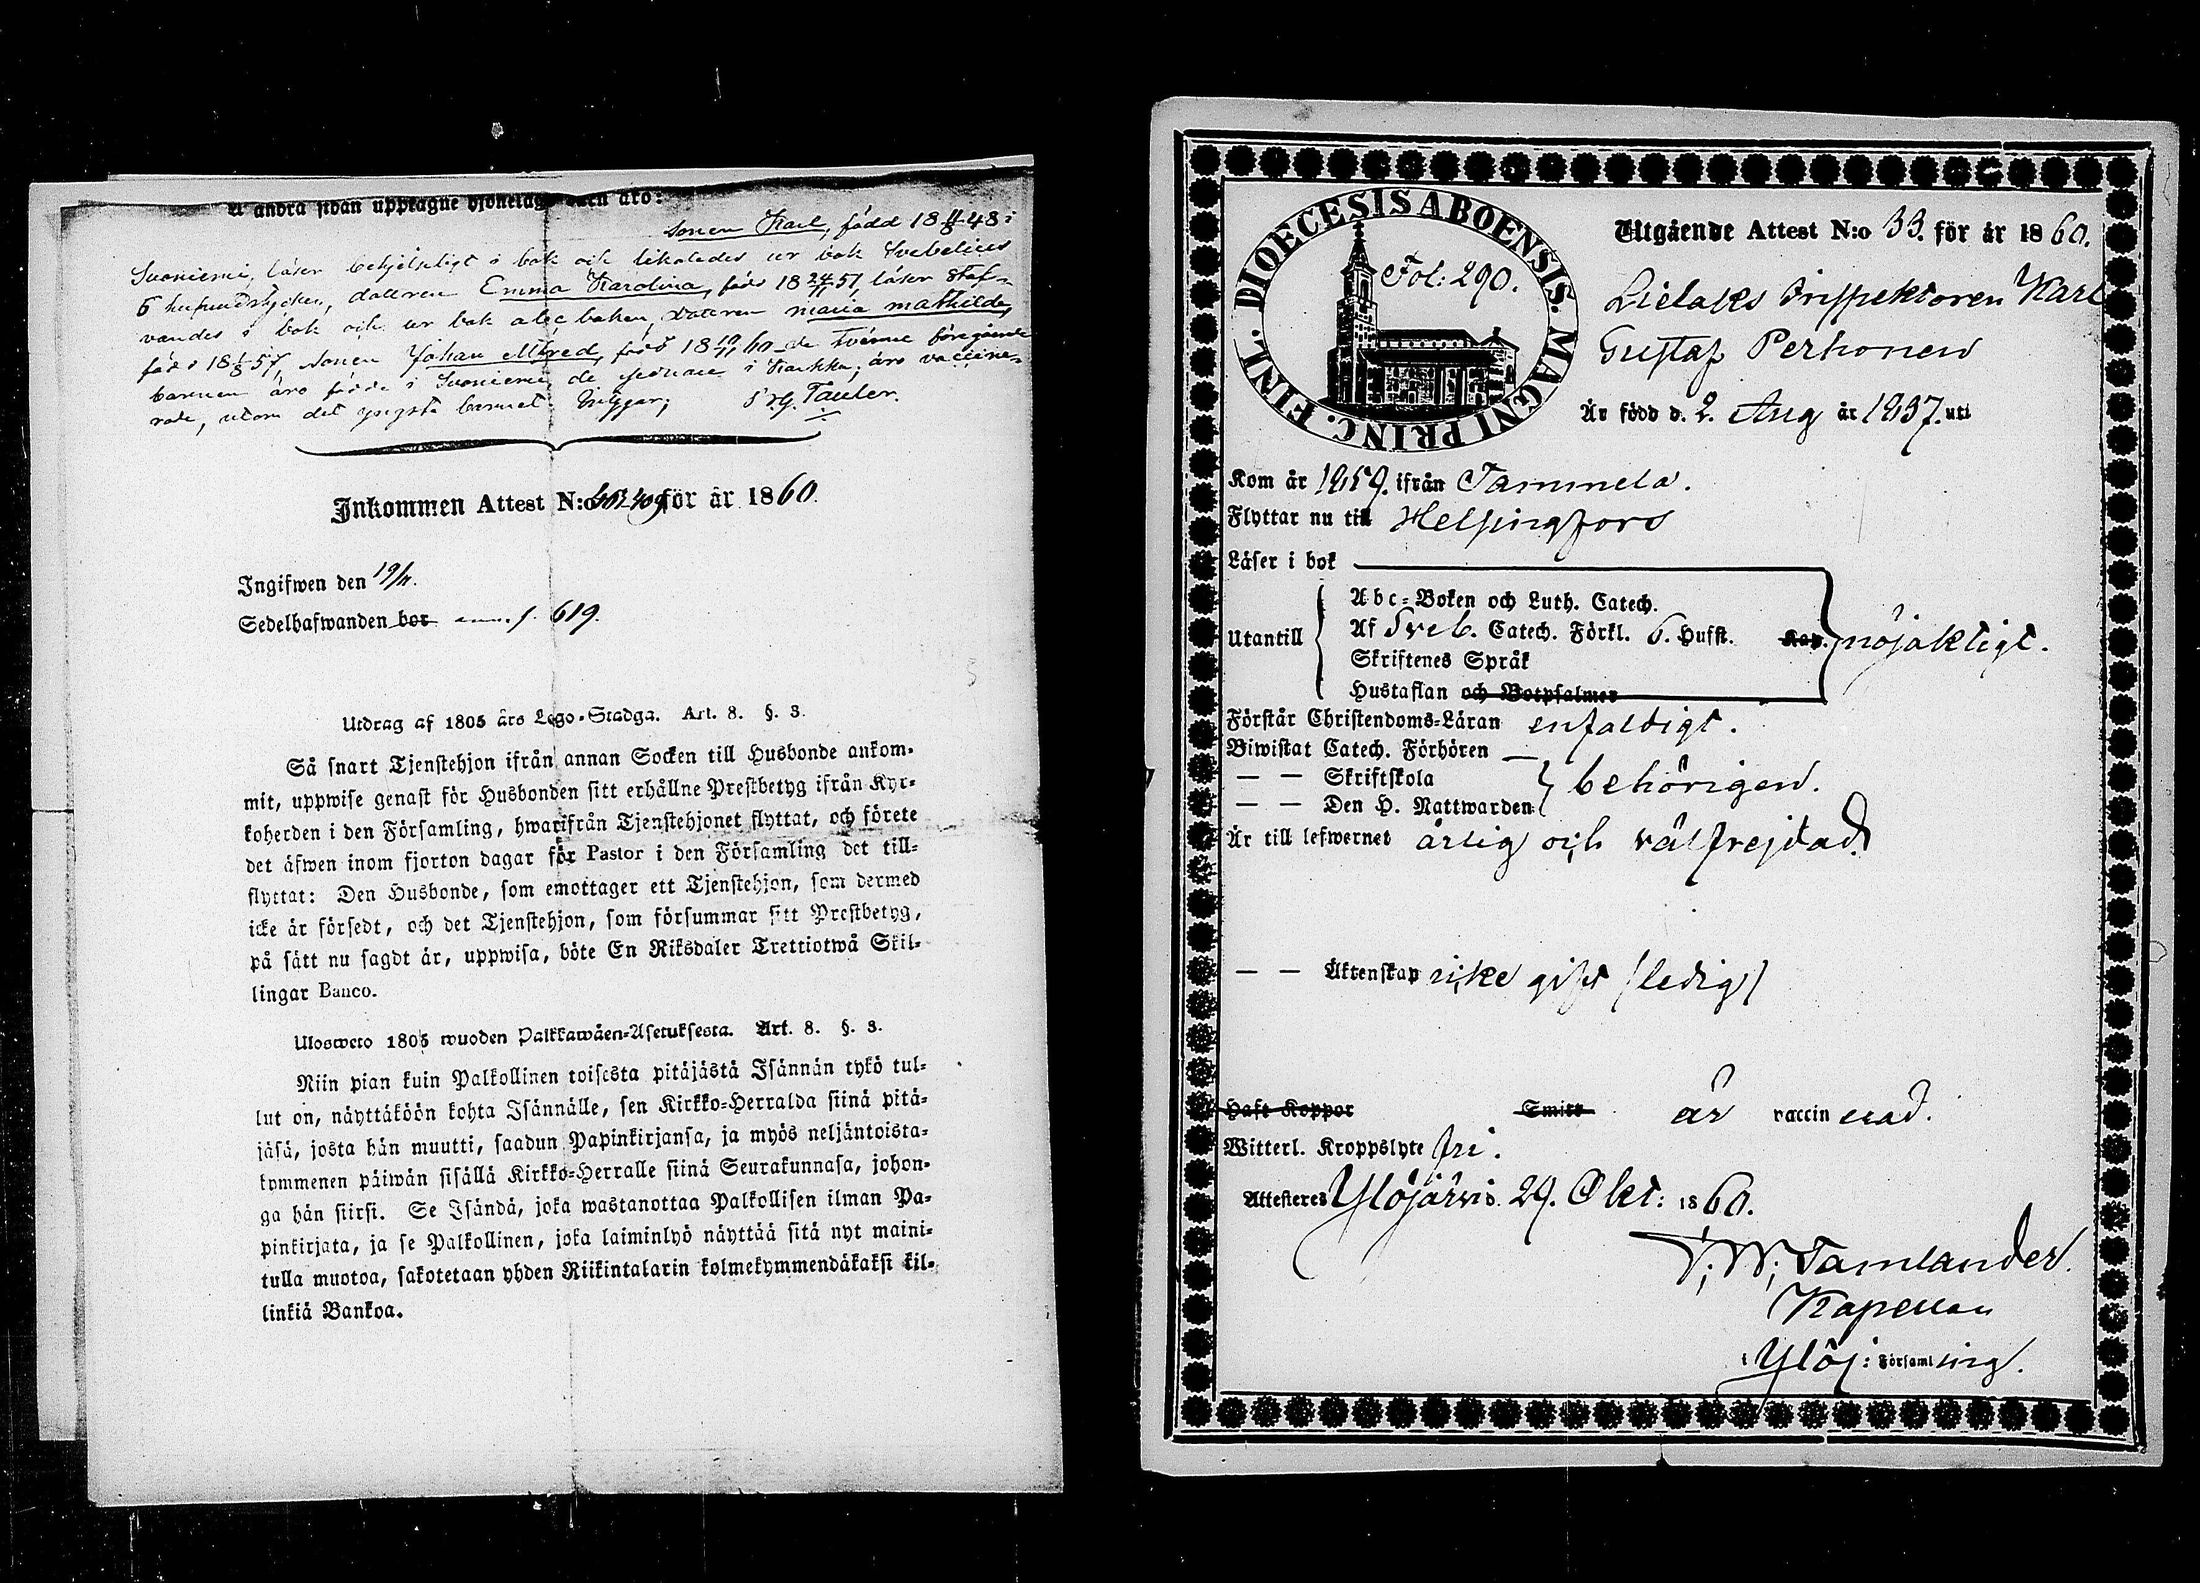 å andra sidan upptagne hjonelag
sonen Karl, född 18 48 i
Suoniemi, läser behjelpligt i bok och likaledes ur bok Svebelices
6 hufvudstycken, dottren Emma Karolina, född 18 24/11 51, läser staf-
vandes i bok och ur bok abc boken, dottren Maria Mathilda,
född 18 57, sonen Johan Alfred, född 18 60 de tvänne föregående
barnen äro födde i Suoniemi, de sednare i Karkku, äro vaccine-
rade, utom det yngsta barnet. Intygar, Tauler.
Inkommen Attest N:o för år 1860.
Ingifwen den 19/11.
Sedelhafwanden bor 619.
Utdrag af 1805 års Lego-Stadga. Art. 8. §. 3.
Så snart Tjenstehjon ifrån annan Socken till Husbonde ankom-
mit, uppwise genast för Husbonden sitt erhållne Prestbetyg ifrån Kyr-
koherden i den Församling, hwarifrån Tjenstehjonet flyttat, och förete
det äfwen inom fjorton dagar för Pastor i den Församling det till-
flyttat: Den Husbonde, som emottager ett Tjenstehjon, som dermed
icke är försedt, och det Tjenstehjon, som försummar sitt Prestbetyg,
på sätt nu sagdt är, uppwisa, böte En Riksdaler Trettiotwå Skil-
lingar Banco.
Ulosweto 1805 wuoden Palkkawäen-Asetuksesta. Art. 8. §. 3.
Niin pian kuin Palkollinen toisesta pitäjästä Isännän tykö tul-
lut on, näyttäköön kohta Isännälle, sen Kirkko-Herralda siinä pitä-
jäsä, josta hän muutti, saadun Papinkirjansa, ja myös neljäntoista-
kymmenen päiwän sisällä Kirkko-Herralle siinä Seurakunnasa, johon-
ga hän siirsi. Se Isändä, joka wastanottaa Palkollisen ilman Pa-
pinkirjata, ja se Palkollinen, joka laiminlyö näyttää sitä nyt maini-
tulla muotoa, sakotetaan yhden Riikintalarin kolmekymmendäkaksi kil-
linkiä Bankoa.
DIOECESIS ABOENSIS. MAGNI PRINC. FINL.
Fol: 290.
Utgående Attest N:o 33. för år 1860.
Lielaks Inspektoren Karl
Gustaf Perhonen
Är född d. 2. Aug år 1837. uti
Kom år 1859. ifrån Tammela.
Flyttar nu till Helsingfors
Läser i bok
Utantill
Abc-Boken och Luth. Catech.
Af Sveb. Catech. Förkl. 6. Hufst. Kap. nöjaktigt.
Skriftenes Språk
Hustaflan och Botpsalmer
Förstår Christendoms-Läran enfaldigt.
Biwistat Catech. Förhören —
— — Skriftskola
— — Den H. Nattwarden behörigen.
Är till lefwernet ärlig och välfrejdad.
— — Äktenskap icke gift (ledig)
Haft Koppor Smitt är vaccinerad.
Witterl. Kroppslyte fri.
Attesteres Ylöjärvi d. 29. Okt: 1860.
Tamlander.
Kapellan
i Ylöj: Församling.